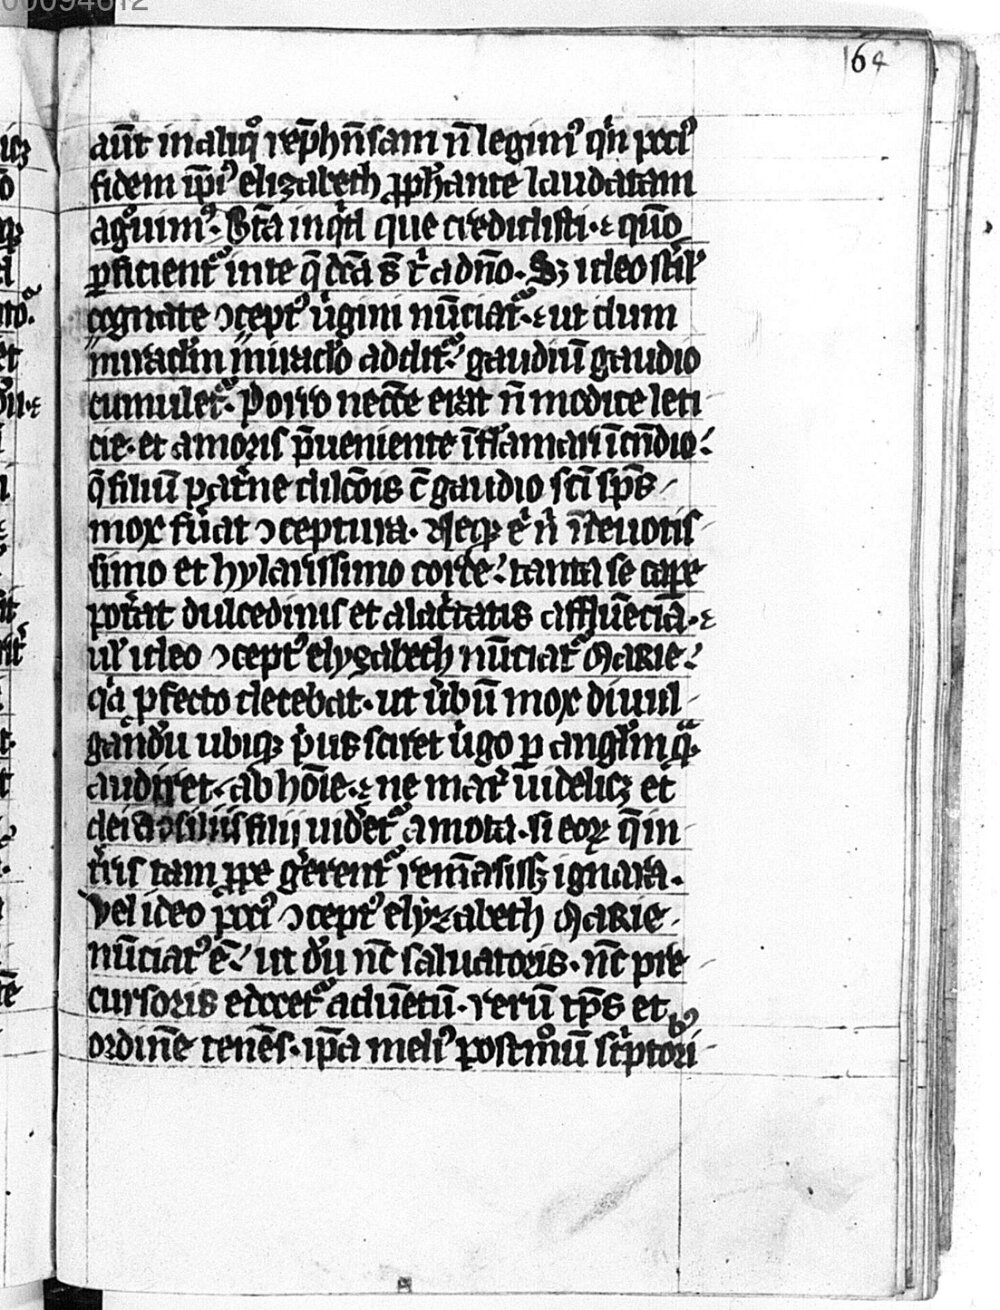 00094612
164
aūt in aliqͦ rep̄hn̄sam n̄ legim᷒ qn̄ poci᷒
fidem ip̄i᷒ elizabeth ꝓph̄ante laudatam
agͦuim᷒. Bt̄a inq̇t que credidisti. ⁊ qm̄o
ꝑficient᷑ in te q̄ dc̄a s̄t ṫ a dn̄o. Sꝫ ideo st̄il᷒
cognate ꝯcept᷒ u̇gini nūciat᷑. ⁊ ut dum
miraclm̄ miraclo addit᷑. gaudiū gaudio
cumulet᷑. Porro necc̄e erat n̄ modice leti
cie. et amoris p̄ueniente īflāmari īcn̄dio.
q̄ filiū pat̄ne dilc̄ōis c̄ gaudio sc̄i sp̄s
mox fu̇at ꝯceptura. Neqꝫ e̅ n̄ ī deuotis
simo et hylarissimo corde. tanta se cape
pot̄at dulcedinis et alac̓tatis affluēcia. ⁊
ul᷒ ideo ꝯcept᷒ elyzabeth nūciat᷑ Marie.
q̇a ꝓfecto decebat. ut u̇bū mox diuul
gandū ubiqꝫ p̓us sciret u̇go ꝑ angl̄m qͣ̄
audiret. ab hōīe. ⁊ ne mat᷑ uidelicꝫ et
dei ꝯsiliis filij uider̄et᷑ amota. si eoꝝ q̄ in
t̓ris tam ꝓpe ge̓rent᷑ remāsissꝫ ignara.
Vel ideo poci᷒ ꝯcept᷒ elyzabeth Marie
nūciat᷒ ē. ut dū nc̄ saluatoris. nc̄ pre
cursoris edocet᷑ aduētū. rerū tp̄s et
ordinē tenēs. ip̄a meli᷒ postmͦū sc̓ptori
b᷒